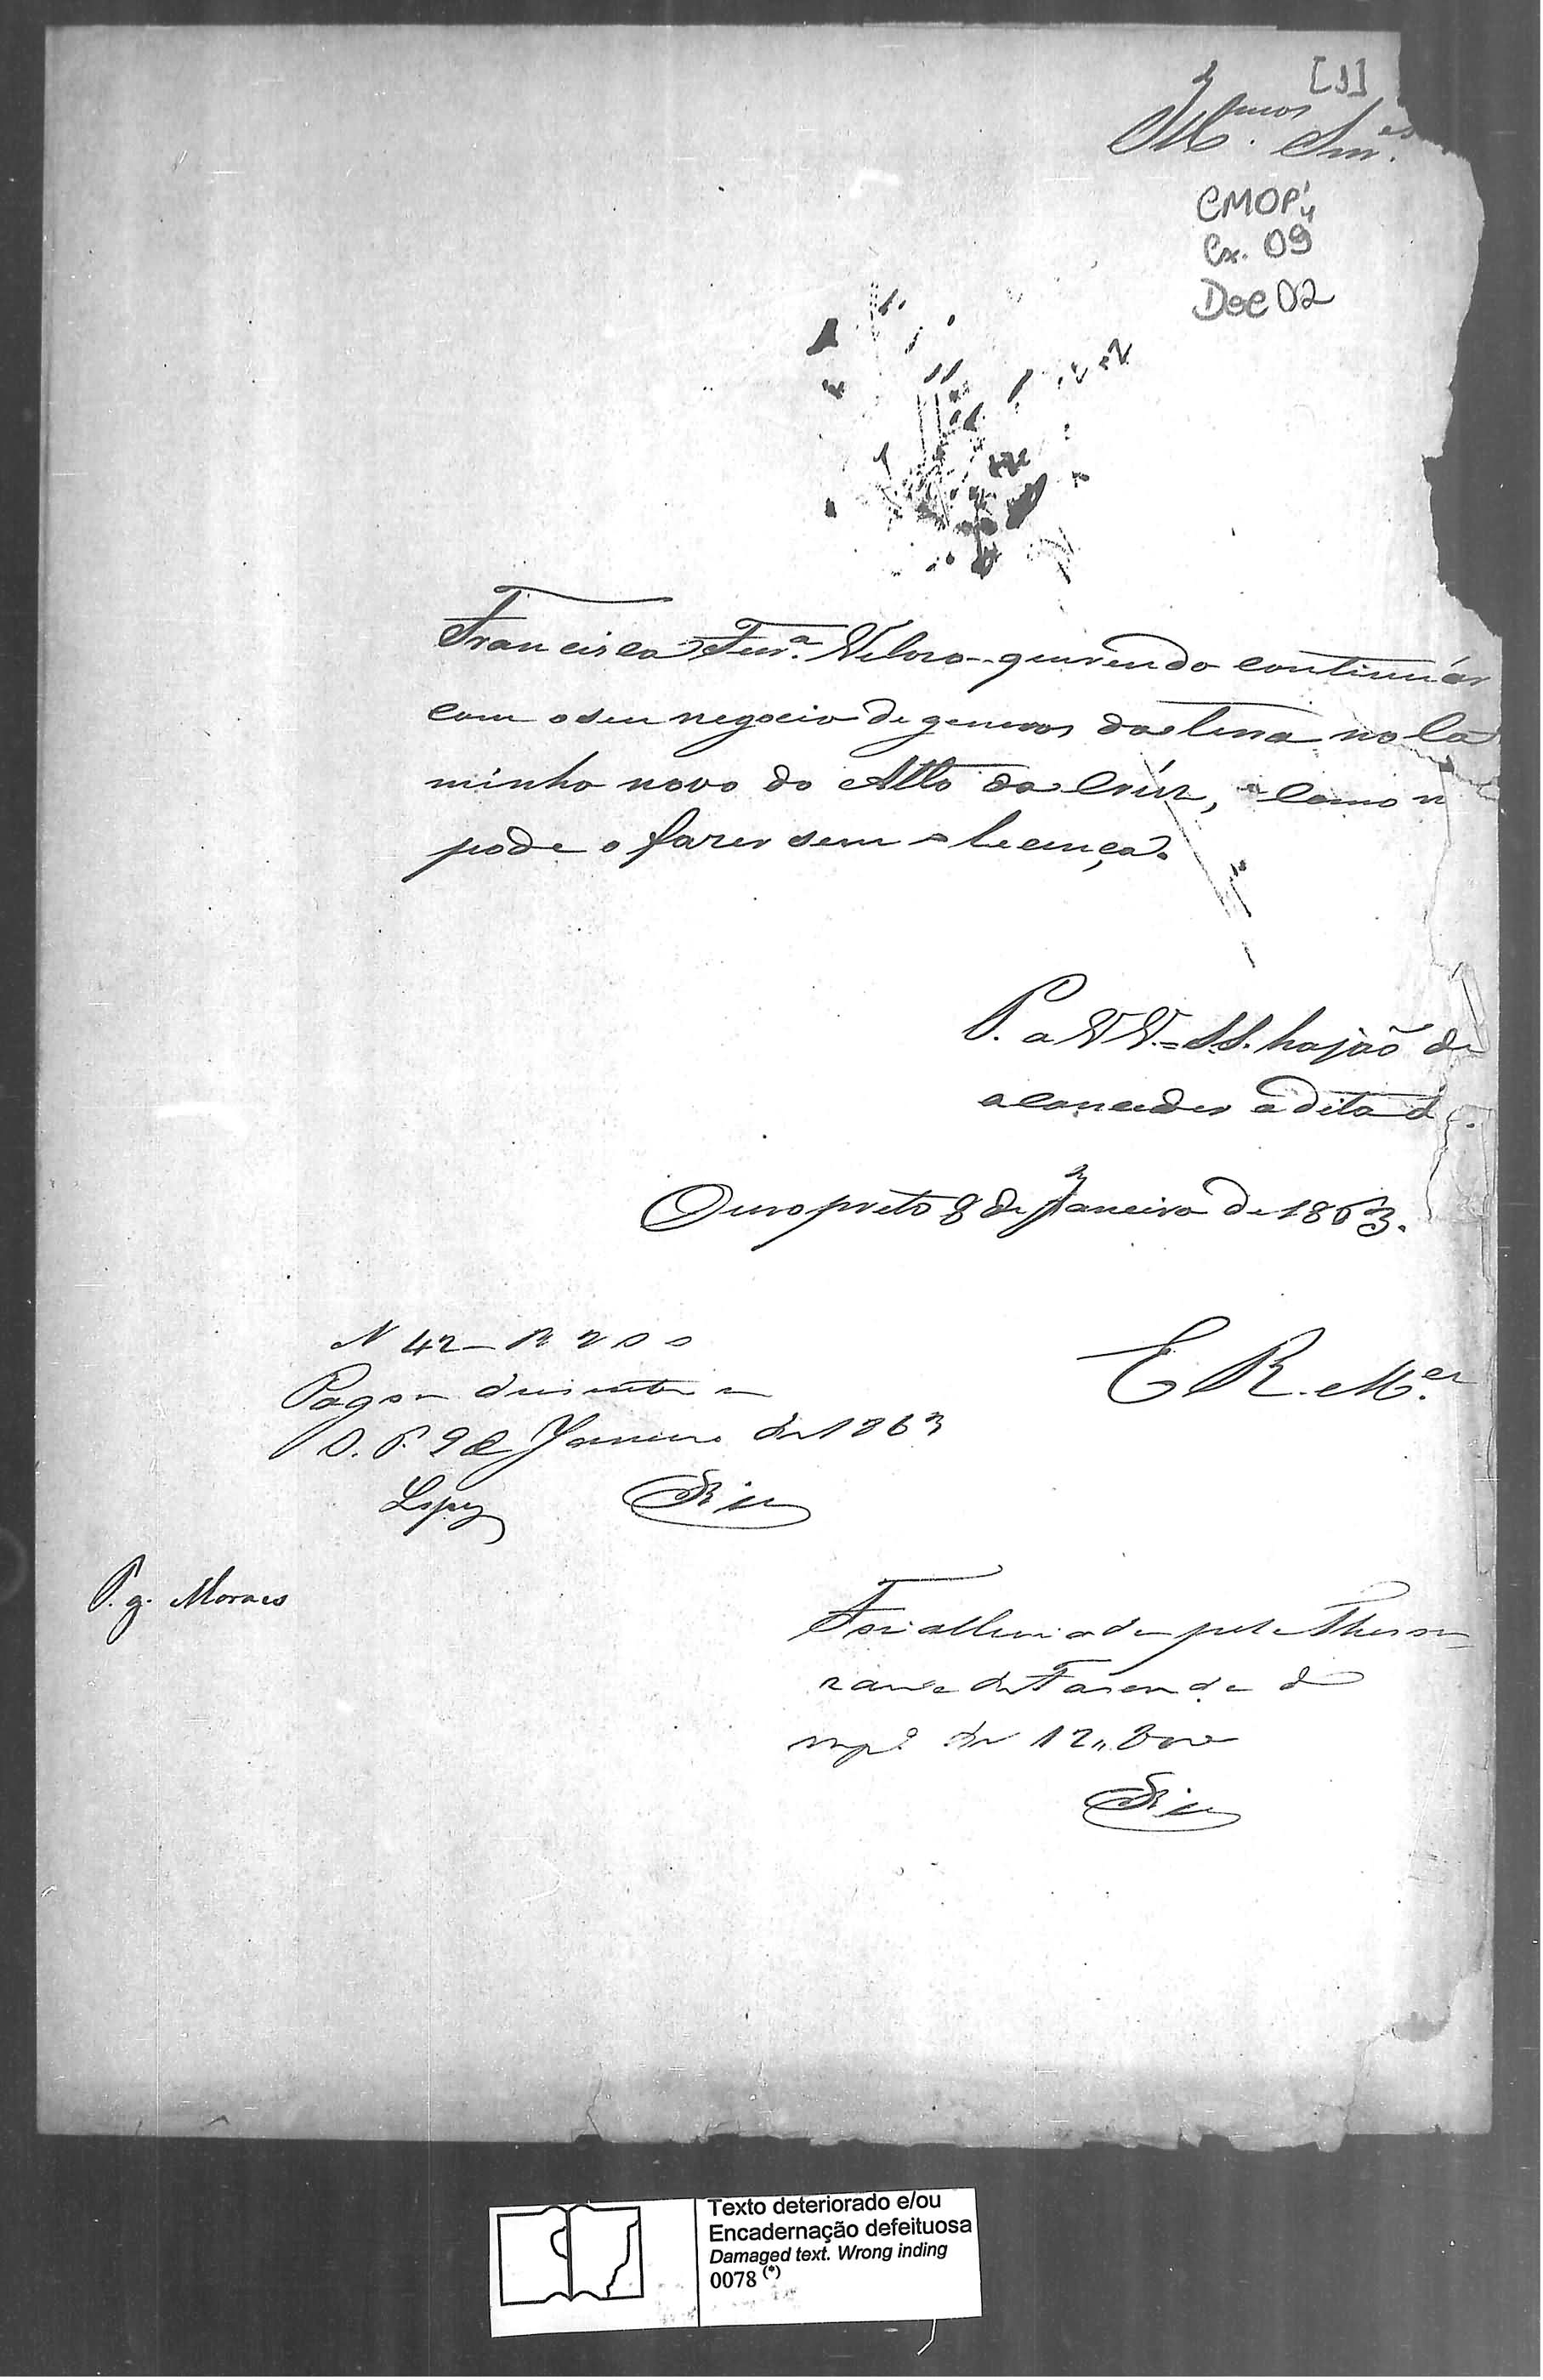 [1]
Ill.mos Snr.es
CMOP 1/4
Cx. 09
Doc 02
Francisca Ferr.a Veloso querendo continuár
com o seu negocio de generos da terra no Ca
minho novo do Alto da Crúz, e como n
pode o fazer sem a licença.
P. a VV. SS. hajão de
a conceder a dita
Ouro preto 8 de Janeiro de 1863.
E R. M.ce
N 42 — R 200
Pagou dusentos rs
O. P. 9 de Janeiro de 1863
Lopes
P. g. Moraes
Foi alliviada pela Thesou
raria de Fazenda do
imp.o de 12,,800
Texto deteriorado e/ou
Encadernação defeituosa
Damaged text. Wrong inding
0078 (*)